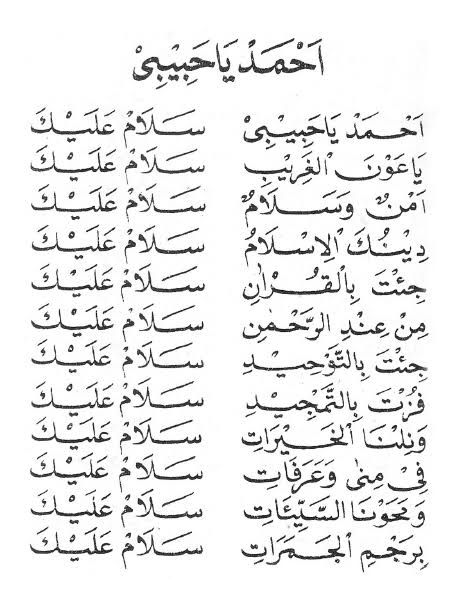 اَحْمَدْ يَاحَبِيْبِيْ
اَحْمَدْ يَاحَبِيْبِيْ سَلَامْ عَلَيْكَ
يَاعَوْنَ الْغَرِيْبِ سَلَامْ عَلَيْكَ
اَمْنٌ وَسَلَامٌ سَلَامْ عَلَيْكَ
دِيْنُكَ الْاِسْلَامُ سَلَامْ عَلَيْكَ
جِئْتَ بِالْقُرْاٰنِ سَلَامْ عَلَيْكَ
مِنْ عِنْدِ الرَّحْمٰنِ سَلَامْ عَلَيْكَ
جِئْتَ بِالتَّوْحِيْدِ سَلَامْ عَلَيْكَ
فُزْتَ بِالتَّمْجِيْدِ سَلَامْ عَلَيْكَ
وَنِلْنَا الْخَيْرَاتِ سَلَامْ عَلَيْكَ
فِيْ مِنٰى وَعَرَفَاتِ سَلَامْ عَلَيْكَ
وَمَحَوْنَا السَّيِّئَاتِ سَلَامْ عَلَيْكَ
بِرَجْمِ الْجَمَرَاتِ سَلَامْ عَلَيْكَ